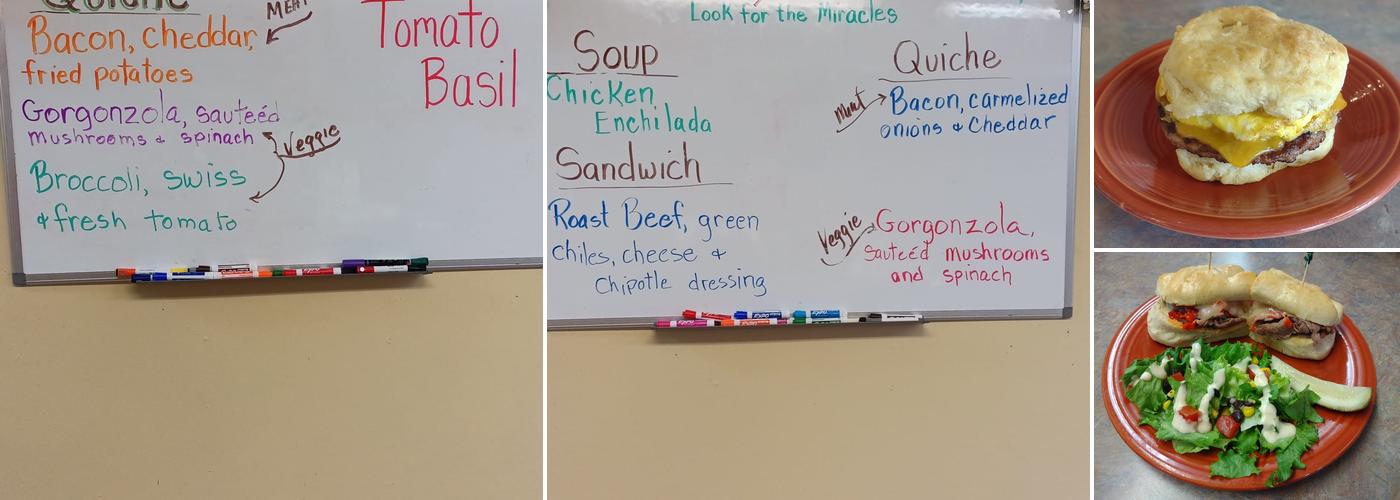 Quiche
MEAT
Bacon, cheddar,
fried potatoes
Gorgonzola, sauteéd
mushrooms & spinach
Veggie
Broccoli, swiss
& fresh tomato
Tomato
Basil
Look for the Miracles
Soup
Chicken
Enchilada
Sandwich
Roast Beef, green
Chiles, cheese &
Chipotle dressing
Quiche
Meat
Bacon, carmelized
onions & Cheddar
Veggie
Gorgonzola,
Sauteéd mushrooms
and spinach